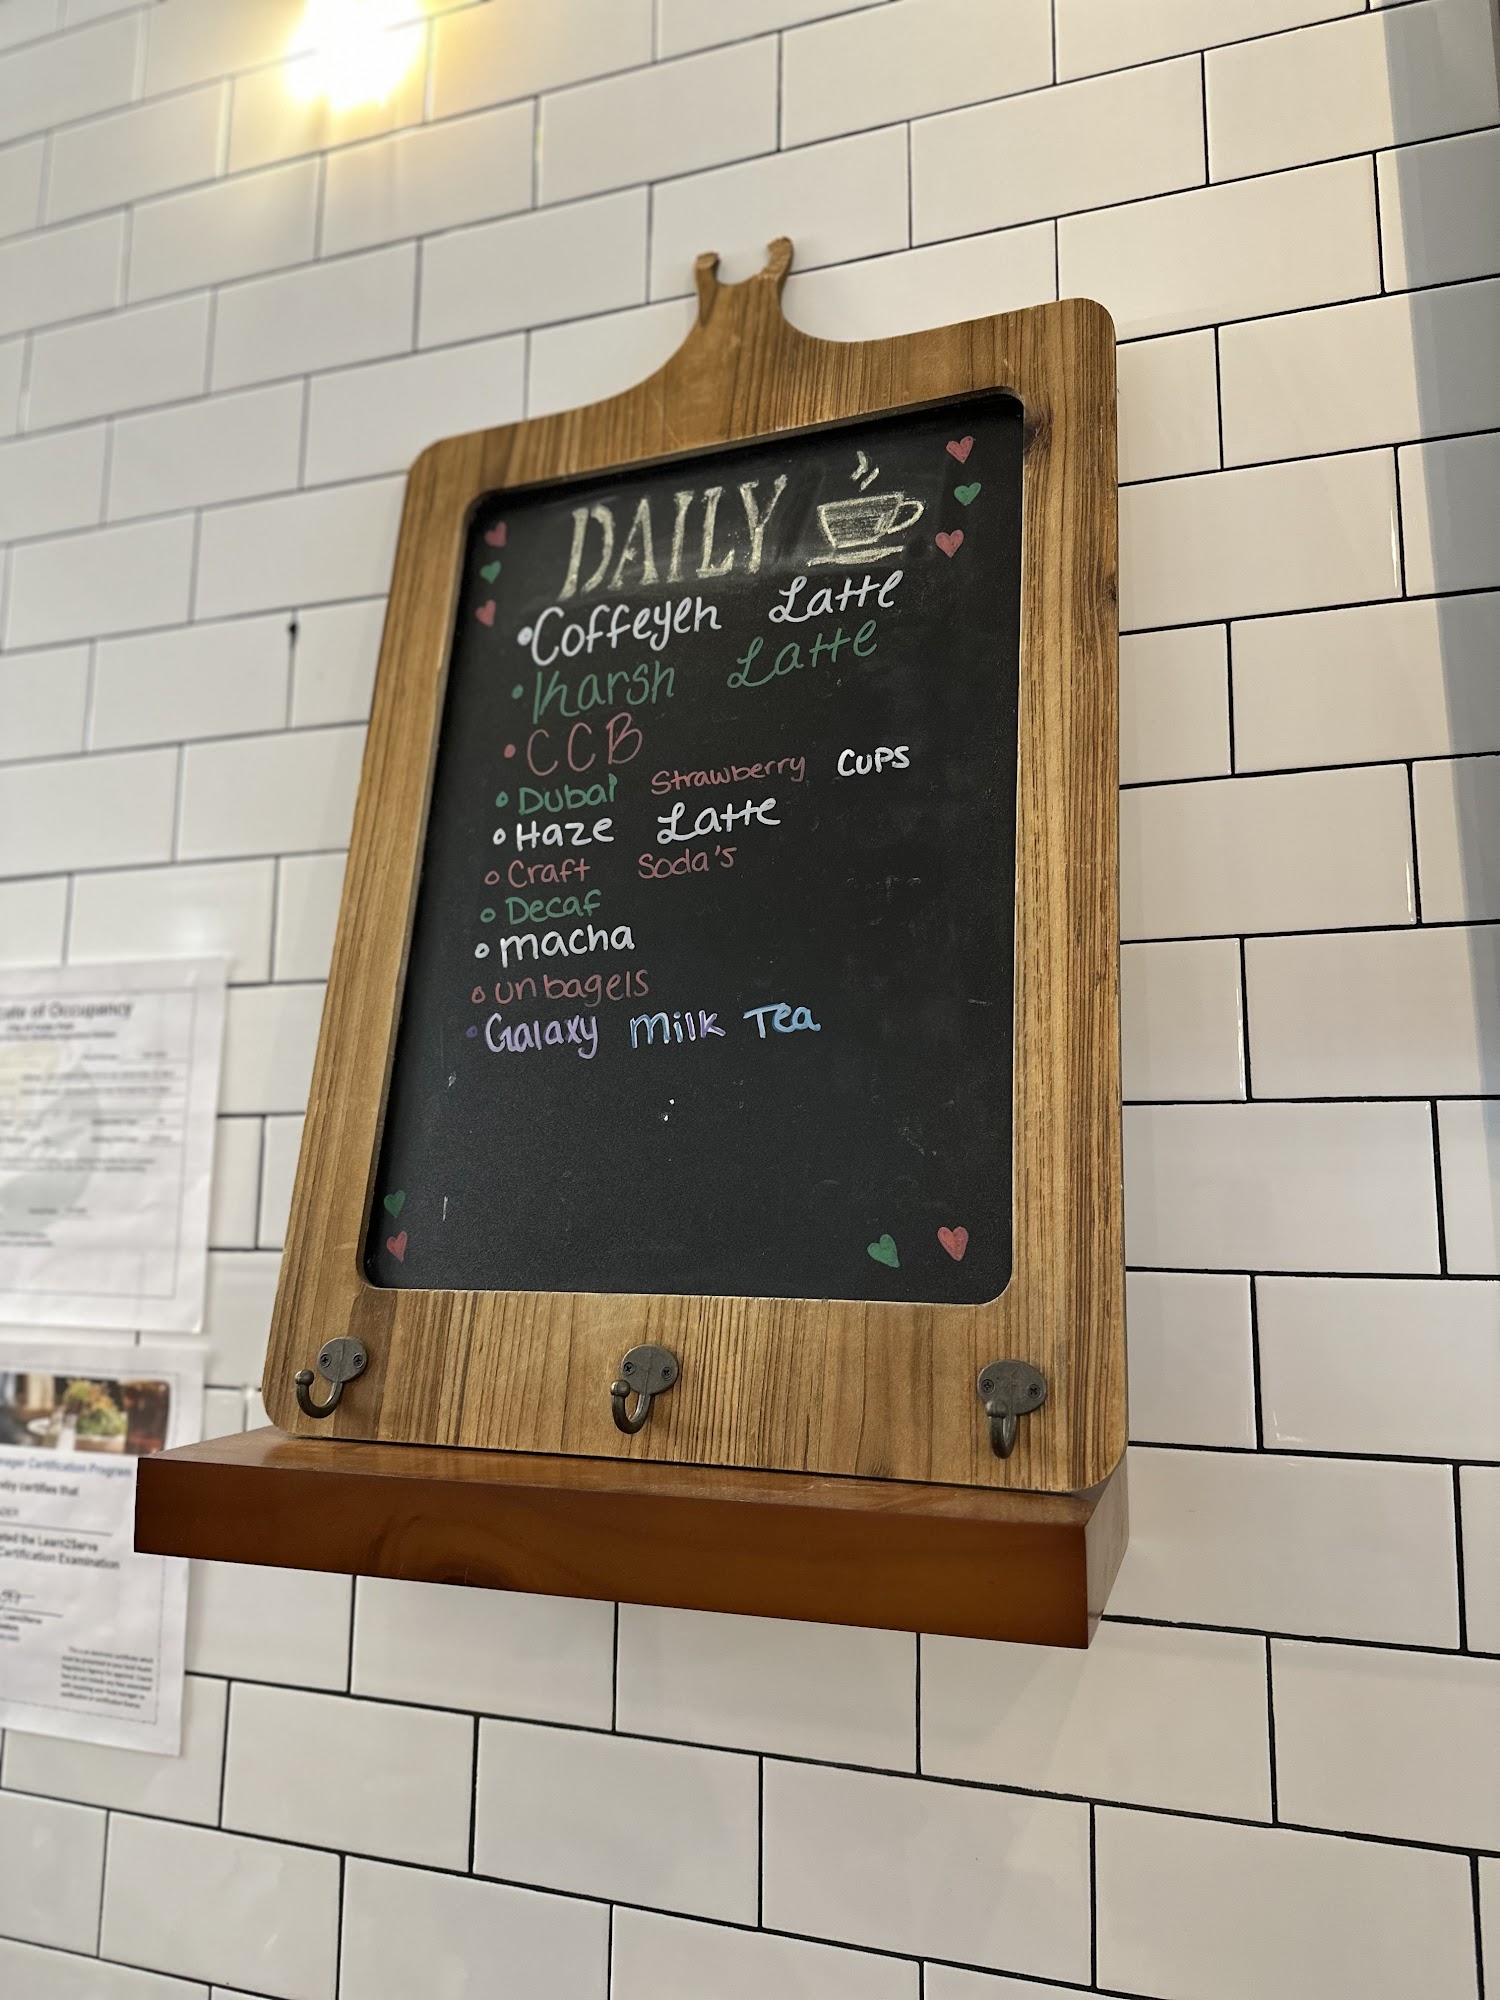 DAILY
•Coffeyeh Latte
•Kharsh Latte
•CCB
•Dubai Strawberry CUPS
•Haze Latte
•Craft Soda's
•Decaf
•macha
•unbagels
•Galaxy Milk Tea
of Occupancy
Certification Program
certifies that
the Learn2Serve
Certification Examination